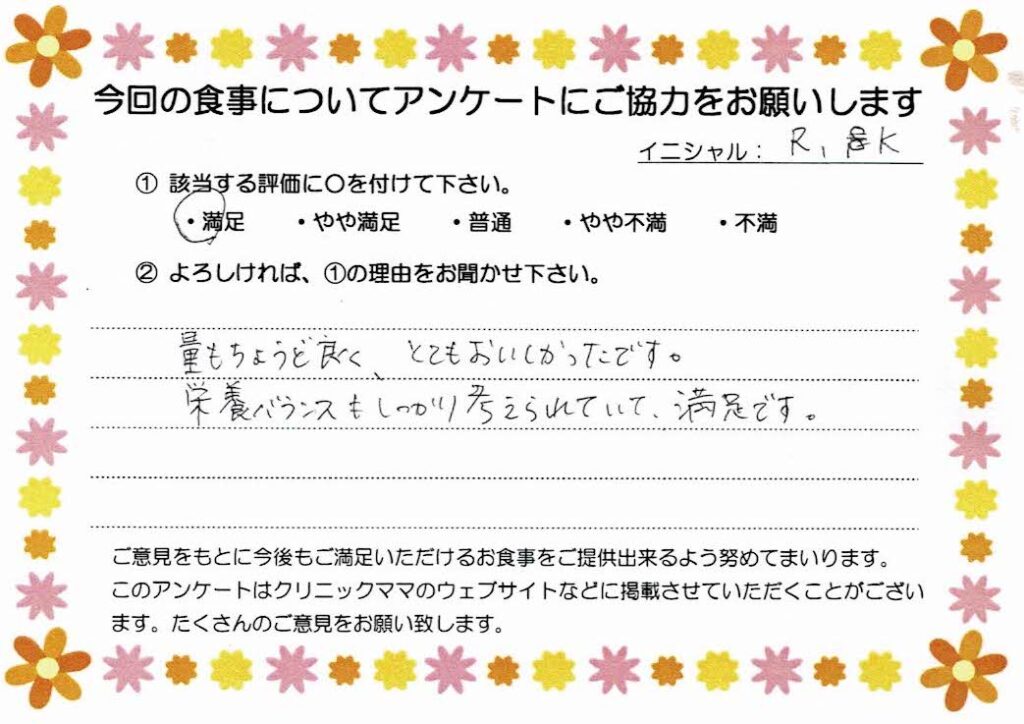 今回の食事についてアンケートにご協力をお願いします
イニシャル： R、K
① 該当する評価に○を付けて下さい。
・満足 ・やや満足 ・普通 ・やや不満 ・不満
② よろしければ、①の理由をお聞かせ下さい。
量もちょうど良く、とてもおいしかったです。
栄養バランスもしっかり考えられていて、満足です。
ご意見をもとに今後もご満足いただけるお食事をご提供出来るよう努めてまいります。
このアンケートはクリニックママのウェブサイトなどに掲載させていただくことがござい
ます。たくさんのご意見をお願い致します。